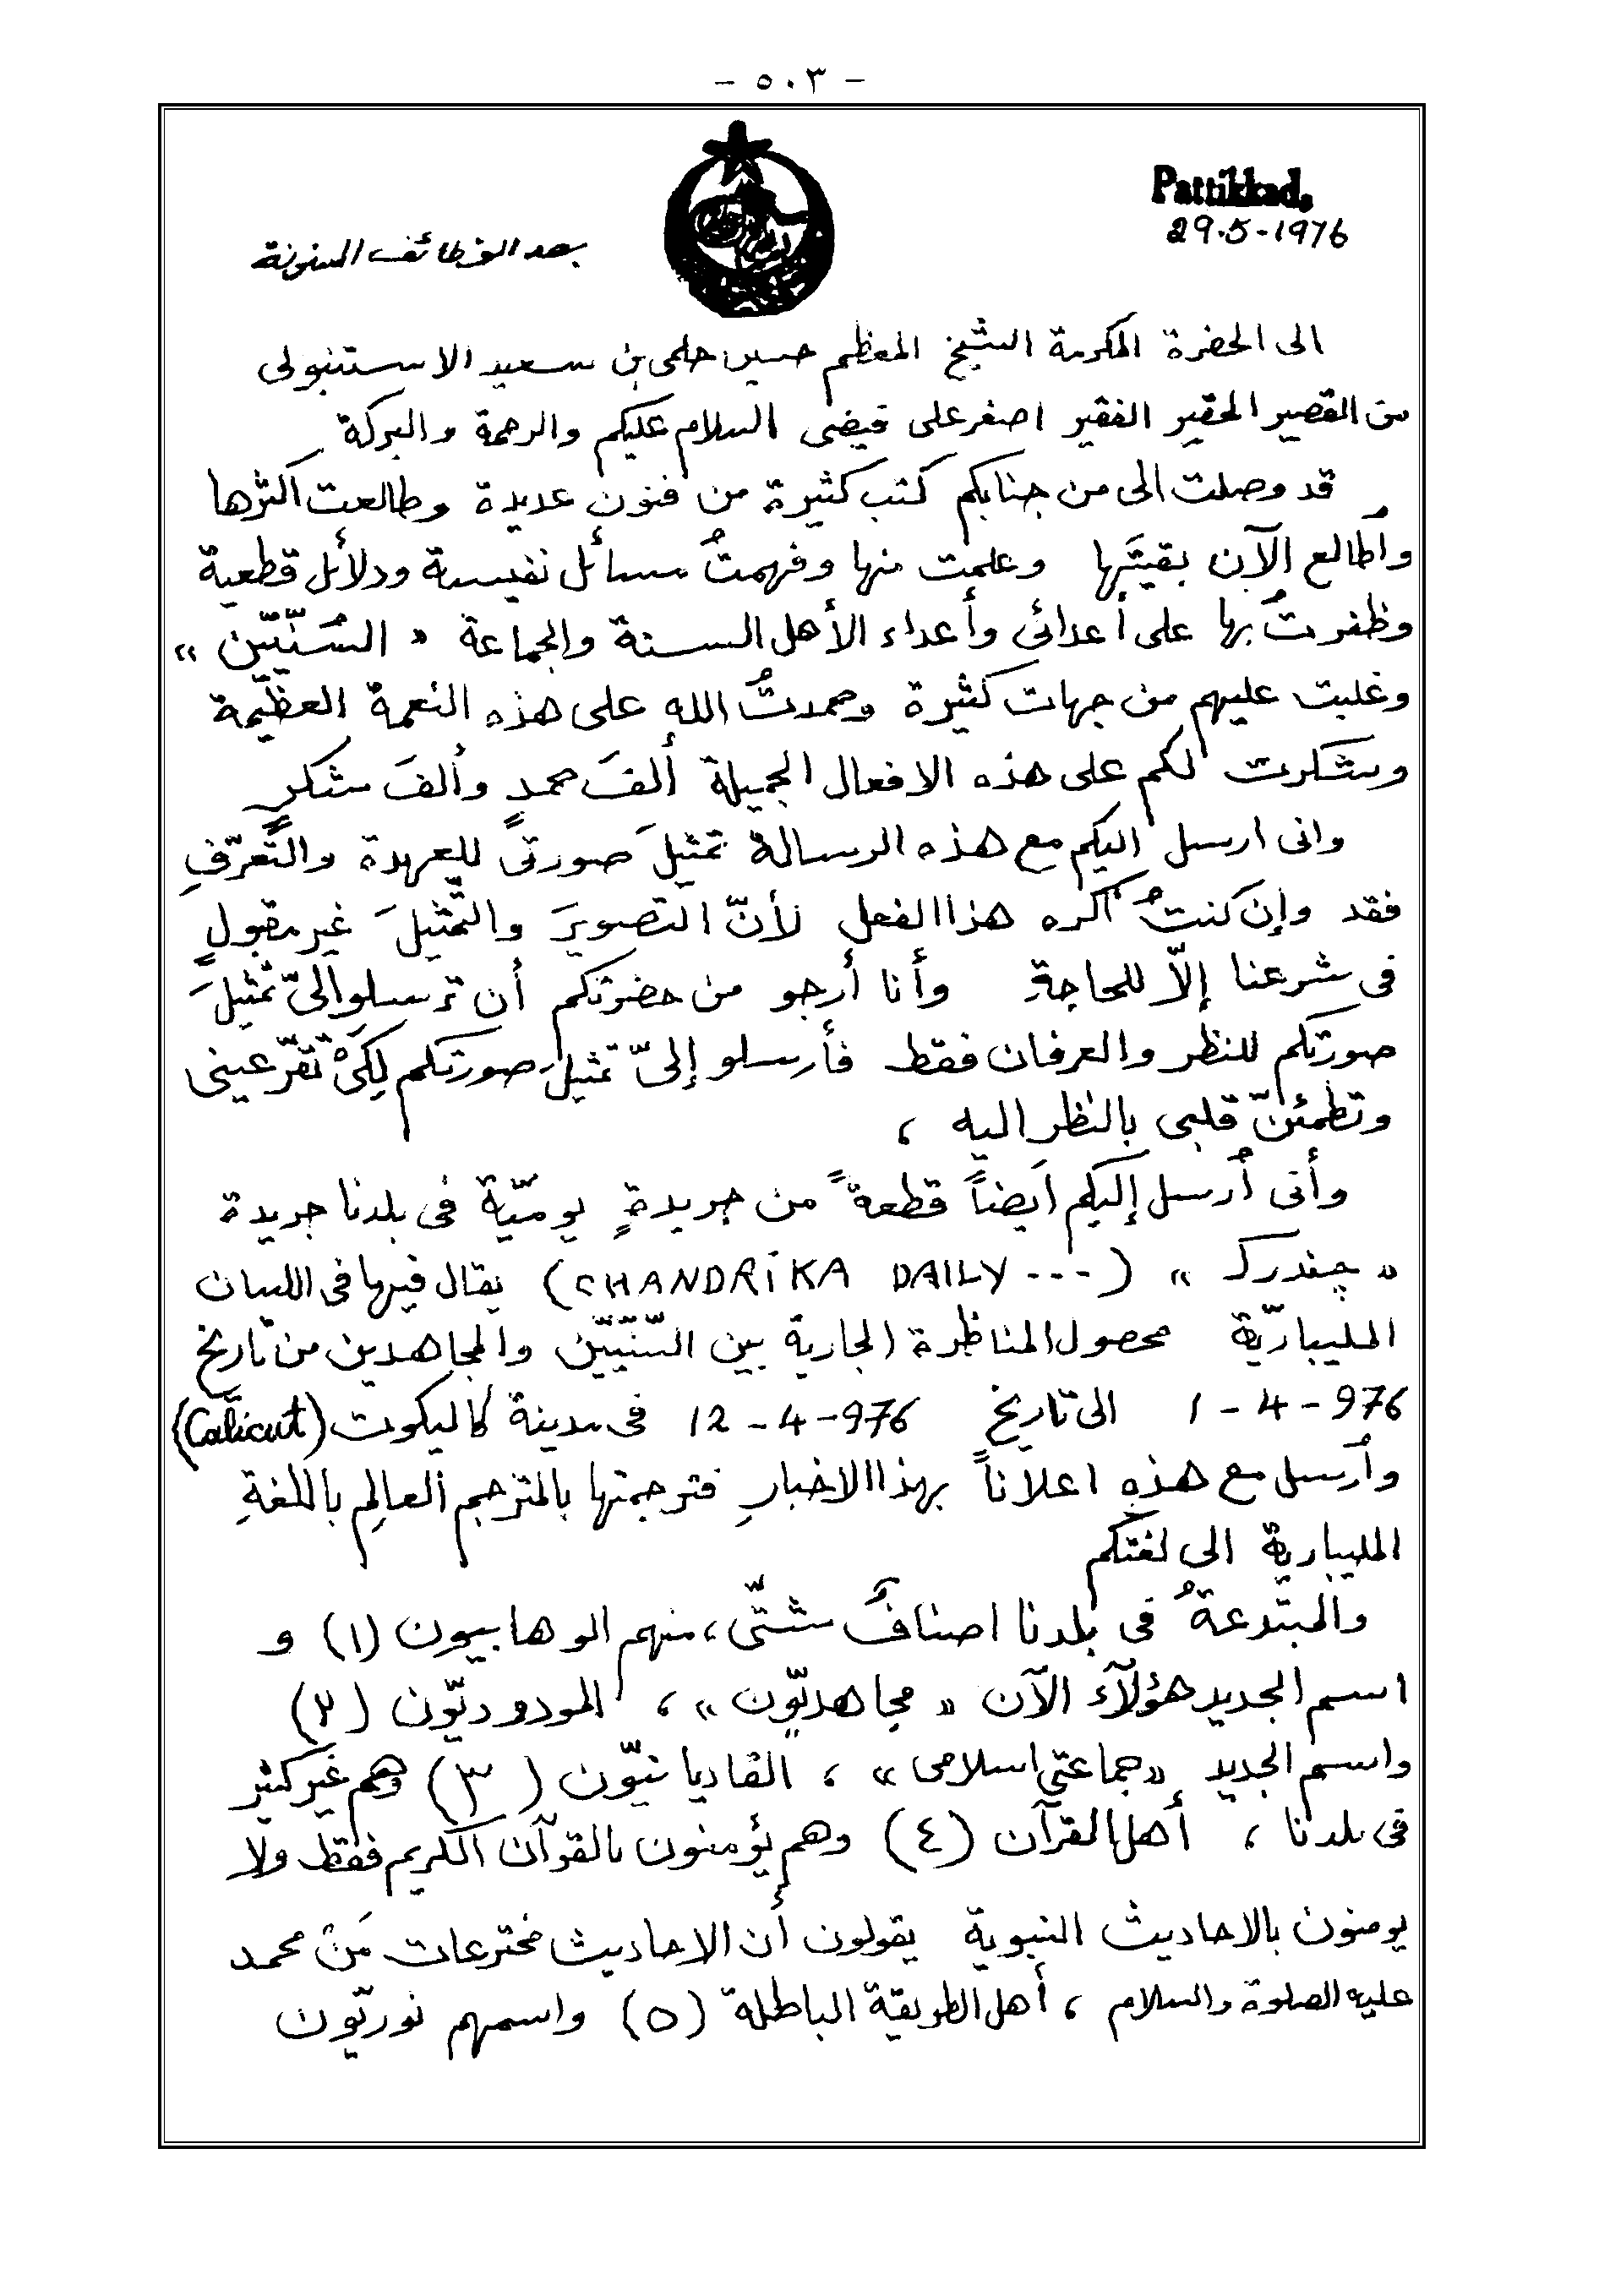 - ٥٠٣ -
Pattikkad.
29.5-1976
بعد الوظائف المسنونة
الى الحضرة المكرمة الشيخ المعظم حسين حلمى بن سعيد الاستنبولى
من القصير الحقير الفقير اصغر على فيضى السلام عليكم والرحمة والبركة
قد وصلت الى من جنابكم كتب كثيرة من فنون عديدة وطالعت اكثرها
وأُطالع الآن بقيتَها وعلمت منها وفهمتُ مسائل نفيسة ودلائل قطعية
وظفرتُ بها على أعدائى وأعداء الأهل السنة والجماعة « السُنّيّين »
وغلبت عليهم من جهات كثيرة وحمدتُ الله على هذه النعمة العظيمة
وشكرت لكم على هذه الافعال الجميلة ألفَ حمدٍ وألفَ شكرٍ
وانى ارسل اليكم مع هذه الرسالة تمثيلَ صورتى للعهدة والتّعرّفِ
فقد وإن كنتُ أكره هذا الفعل لأنّ التصويرَ والتّمثيلَ غير مقبولٍ
فى شرعنا إلّا للحاجةِ وأنا أرجو من حضرتكم أن ترسلوا الىّ تمثيلَ
صورتكم للنظر والعرفان فقط فأرسلو إلىّ تمثيلَ صورتكم لِكَىْ تقرّ عينى
وتطمئنّ قلبى بالنظر اليه ،
وأنى أُرسل إليكم اَيضاً قطعةً من جريدةٍ يوميّة فى بلدنا جريدة
« چندرك » (CHANDRiKA DAILY ---) يقال فيها فى اللسان
المليباريّة محصول المناظرة الجارية بين السّنّيّين والمجاهدين من تاريخ
1 - 4 - 976 الى تاريخ 12 - 4 - 976 فى مدينة كاليكوت (Calicut)
وأُرسل مع هذهِ اعلاناً بهذا الاخبارِ فترجمتها بالمترجم العالِم باللغةِ
المليبارية الى لغتكم
والمبتدعةُ فى بلدنا اصنافٌ شتّى، منهم الوهابيون (١) و
اسم الجديد هؤلآء الآن « مجاهديّون » ، المودوديّون (٢)
واسم الجديد «جماعتِ اسلامى» ، القاديانيّون (٣) وهم غير كثير
فى بلدنا ، أهل القرآن (٤) وهم يؤمنون بالقرآن الكريم فقط ولا
يومنون بالاحاديث النبوية يقولون أن الاحاديث مخترعات مَنْ محمد
عليه الصلوة والسلام ، أهل الطريقة الباطلة (٥) واسمهم نوريّون